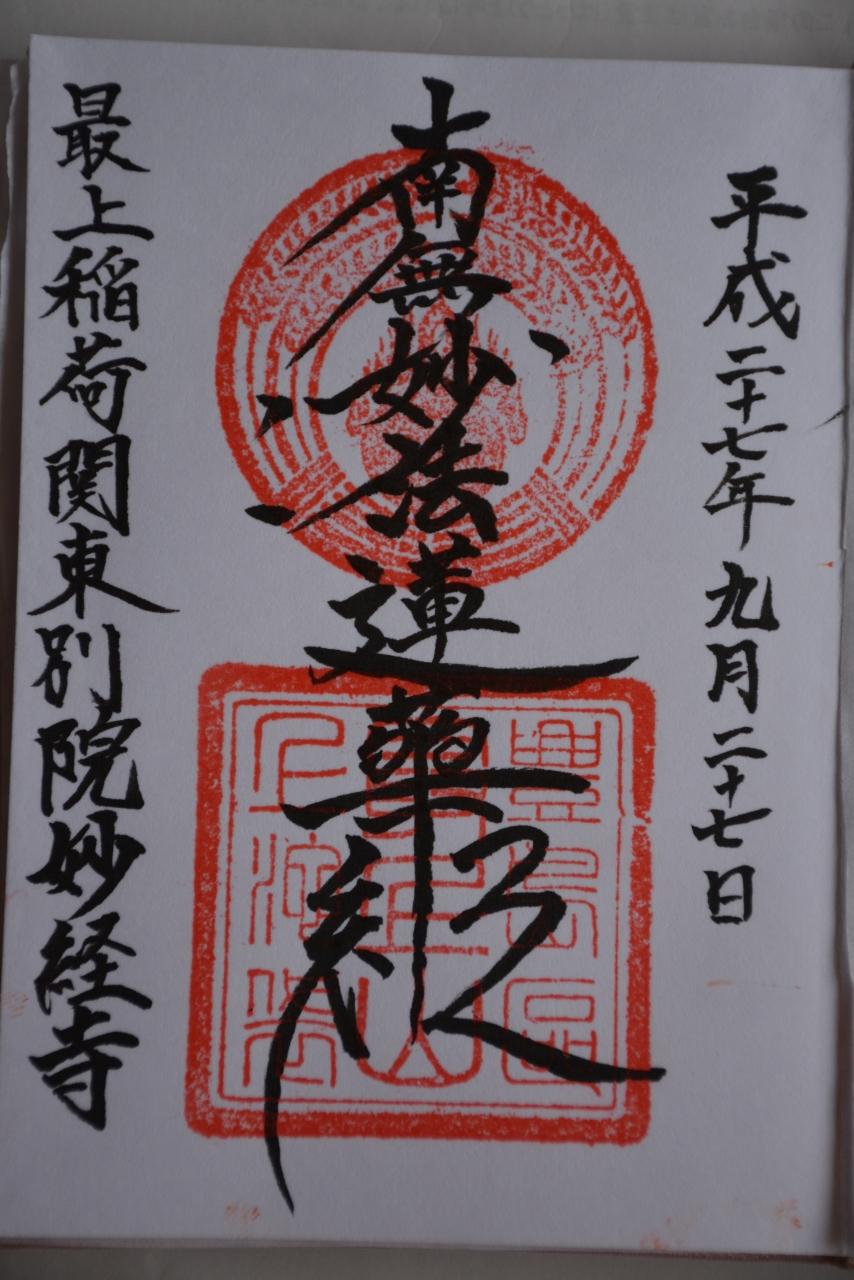 平成二十七年九月二十七日
南無妙法蓮華経
最上稲荷関東別院妙経寺